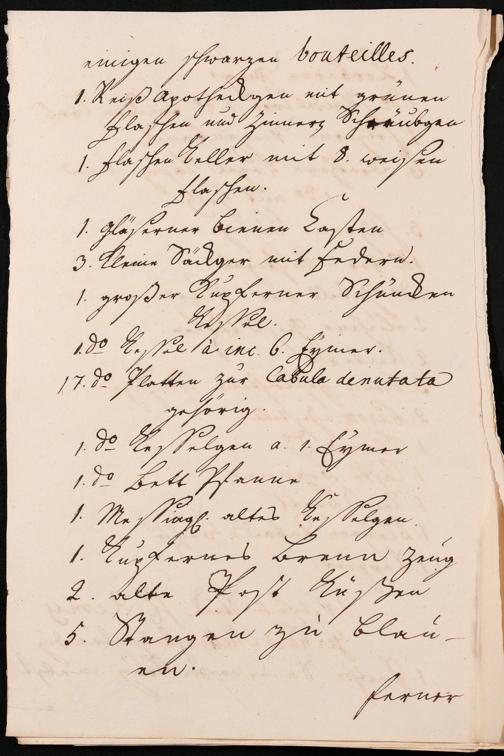 einigen schwarzen bouteilles.
1. Reiß Apotheckgen mit grünen
Flaschen und Zinnern Schräubgen
1. Flaschen Keller mit 8. weisen
Flaschen.
1. gläserner Bienen Casten
3. kleine Säckger mit Federn.
1. großer Kupferner Schuncken
Kessel.
1. do Kessel à inc. 6. Eymer.
17. do Platten zur Tabula denutata
gehörig.
1. do Kesselgen a. 1. Eymer
1. do Bett Pfanne
1. Messingß. altes Kesselgen.
1. Kupfernes Brenn Zeug
2. alte Post Küßen
5. Stangen zu Blau-
en.
ferner